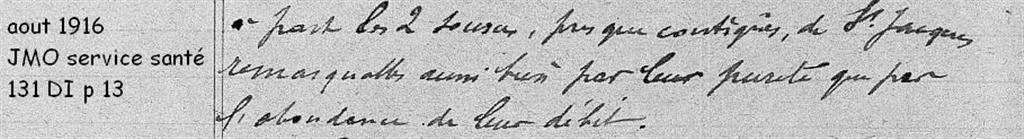 aout 1916
JMO service santé
131 DI p 13
à part les 2 sources, presque contigües, de St Jacques
remarquables aussi bien par leur pureté que par
l'abondance de leur débit.